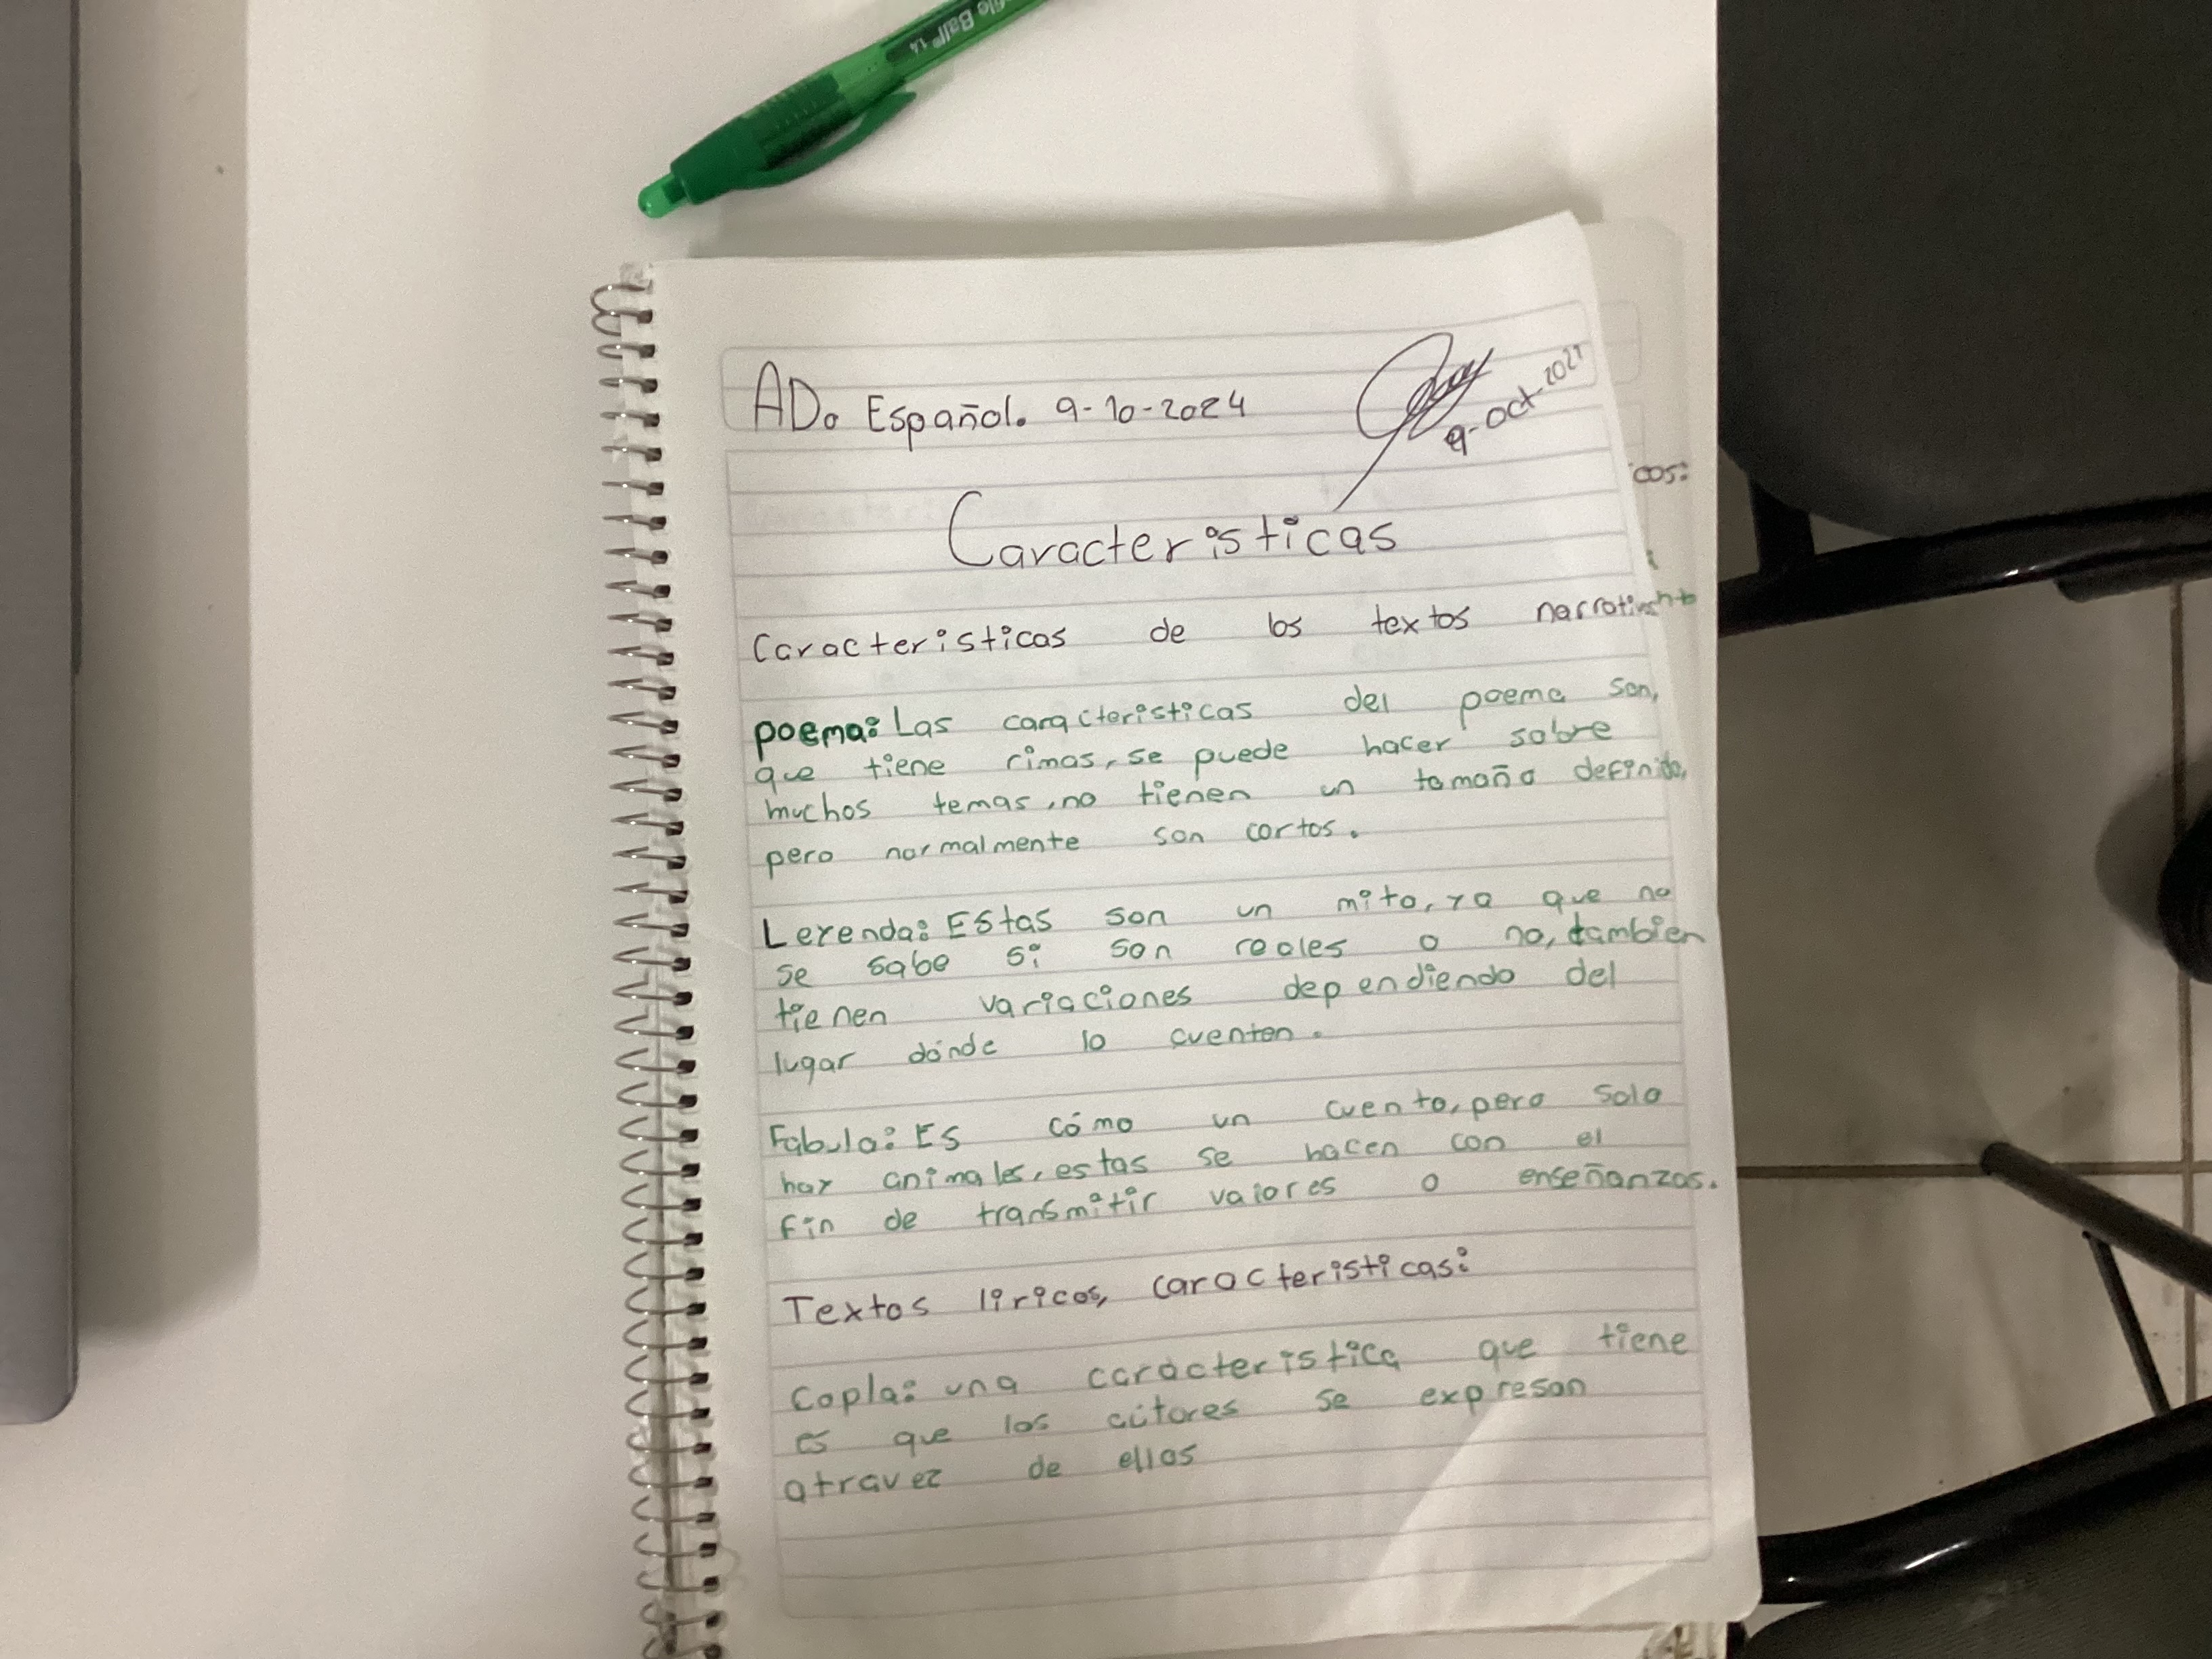 Ball 1.4
AD. Español. 9-10-2024
9-Oct-202
Caracteristicas
cos:
Caracteristicas de los textos
poema: Las caracteristicas del poema son,
que tiene rimas, se puede hacer sobre
muchos temas, no tienen un tamaño definido,
pero normalmente son cortos.
Leyenda: Estas son un mito, ya que no
se sabe si son reales o no, tambien
tienen variaciones dependiendo del
lugar dónde lo cuenten.
Fabula: Es cómo un cuento, pero solo
hay animales, estas se hacen con el
fin de transmitir valores o enseñanzas.
Textos liricos, caracteristicas:
Copla: una caracteristica que tiene
es que los autores se expresan
atravez de ellas